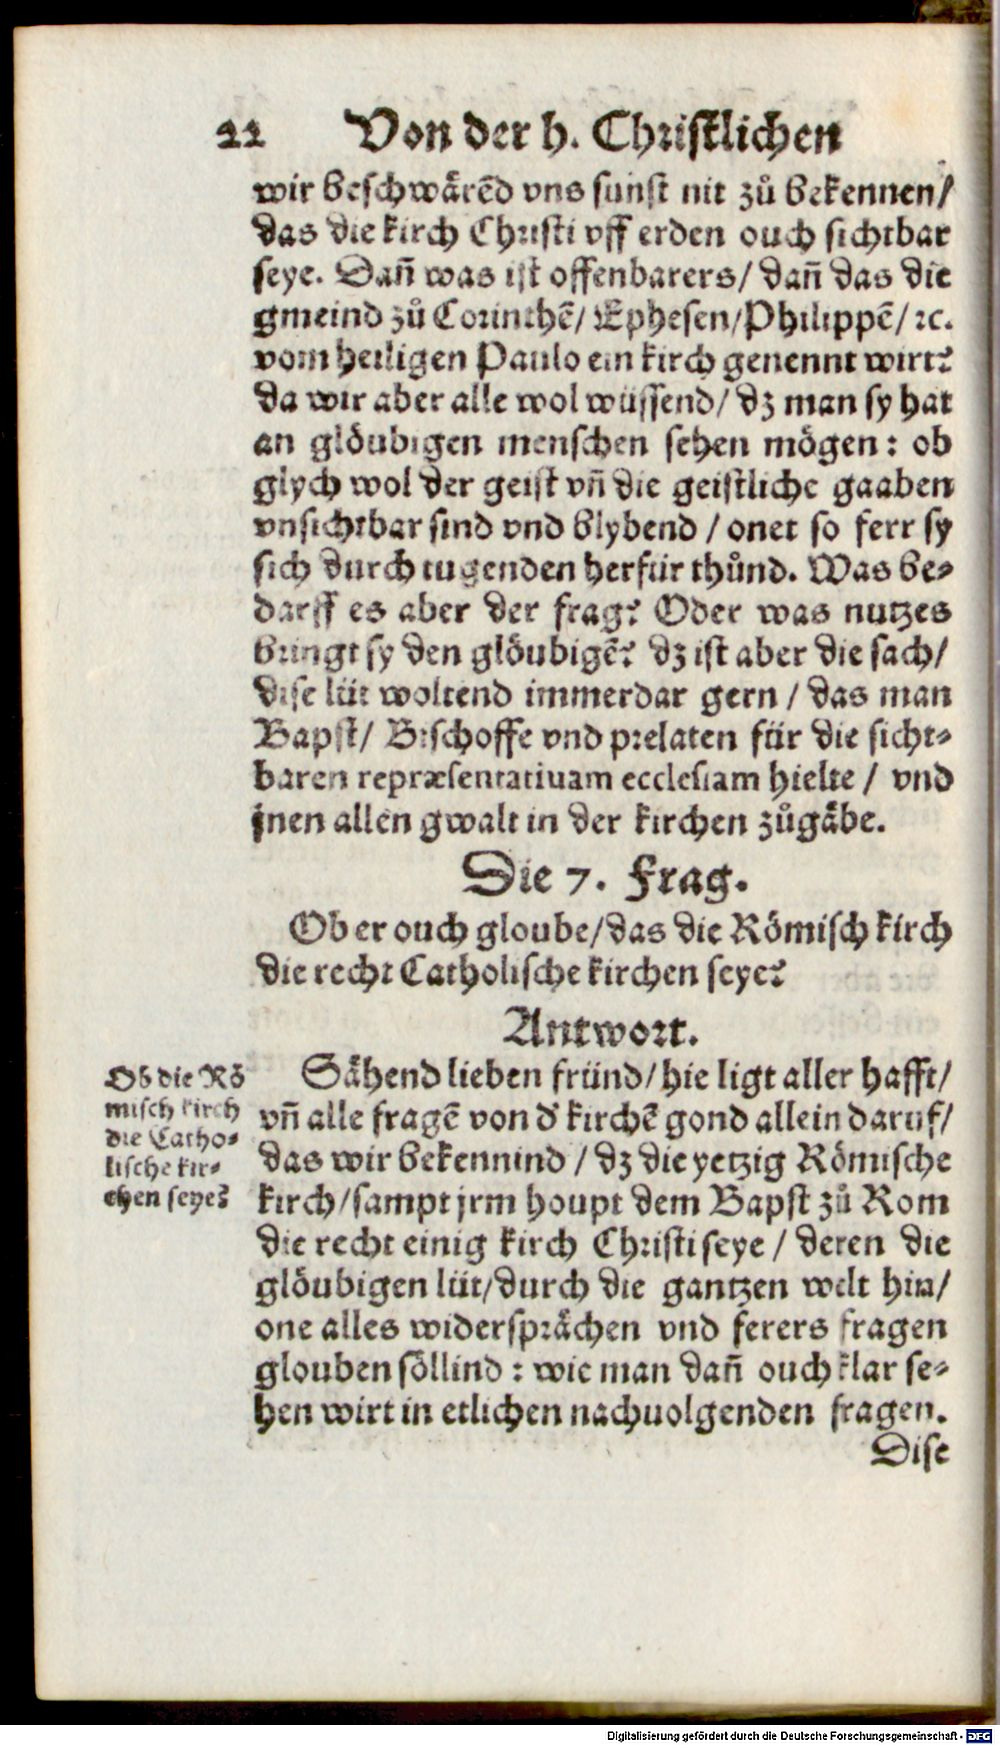 22 Von der h. Christlichen
wir beschwärēd vns sunst nit zů bekennen/
das die kirch Christi vff erden ouch sichtbar
seye. Dañ was ist offenbarers/ dañ das die
gmeind zů Corinthē/ Ephesen/Philippē/ ꝛc.
vom heiligen Paulo ein kirch genennt wirt?
da wir aber alle wol wüssend/ dz man sy hat
an glöubigen menschen sehen mögen: ob
glych wol der geist vñ die geistliche gaaben
vnsichtbar sind vnd blybend / onet so ferr sy
sich durch tugenden herfür thůnd. Was be⸗
darff es aber der frag? Oder was nutzes
bringt sy den glöubigē? dz ist aber die sach/
dise lüt woltend immerdar gern / das man
Bapst/ Bischoffe vnd prelaten für die sicht⸗
baren repræsentatiuam ecclesiam hielte / vnd
jnen allen gwalt in der kirchen zůgäbe.
Die 7. Frag.
Ob er ouch gloube/das die Römisch kirch
die recht Catholische kirchen seye?
Antwort.
Ob die Rö
misch kirch
die Catho⸗
lische kir⸗
chen seye?
Sähend lieben fründ/hie ligt aller hafft/
vñ alle fragē von d' kirchē gond allein daruf/
das wir bekennind / dz die yetzig Römische
kirch/sampt jrm houpt dem Bapst zů Rom
die recht einig kirch Christi seye / deren die
glöubigen lüt/durch die gantzen welt hin/
one alles widersprächen vnd ferers fragen
glouben söllind : wie man dañ ouch klar se⸗
hen wirt in etlichen nachuolgenden fragen.
Dise
Digitalisierung gefördert durch die Deutsche Forschungsgemeinschaft - DFG